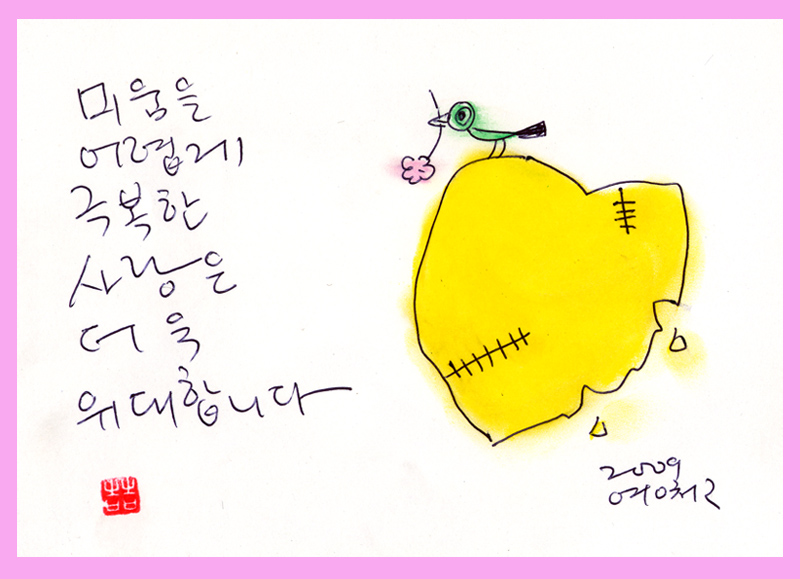 미움을
어렵게
극복한
사랑은
더욱
위대합니다
2009